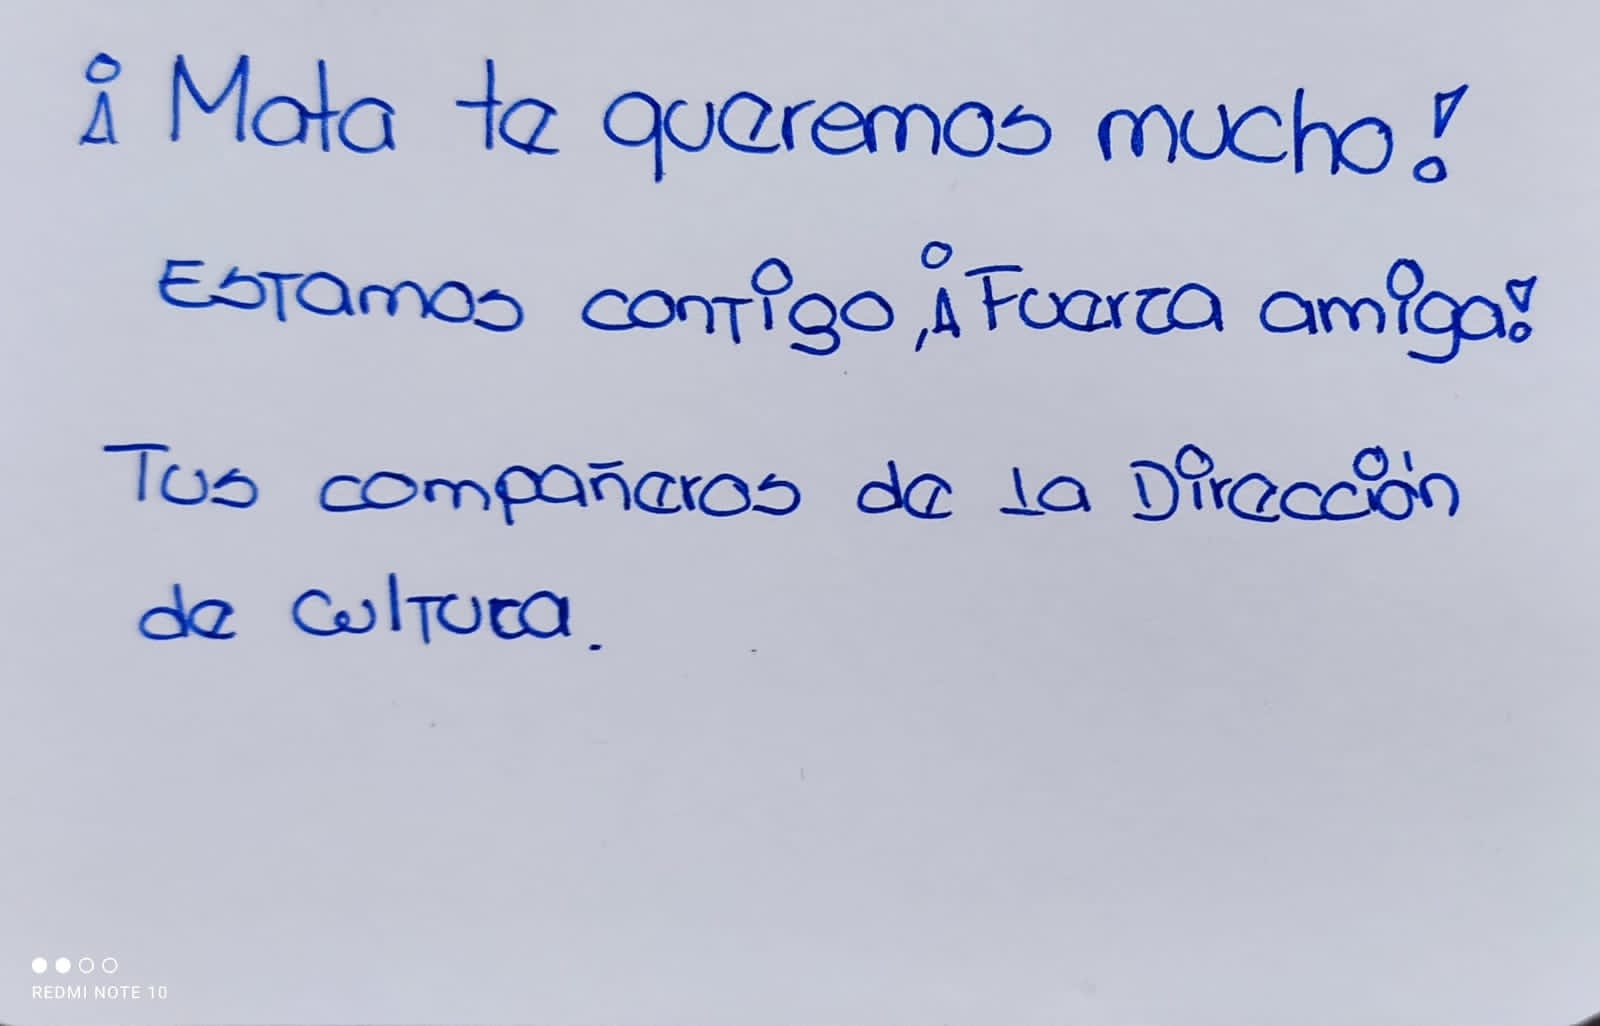 ¡Mata te queremos mucho!
Estamos contigo, ¡Fuerza amiga!
Tus compañeros de la Dirección
de Cultura.
REDMI NOTE 10